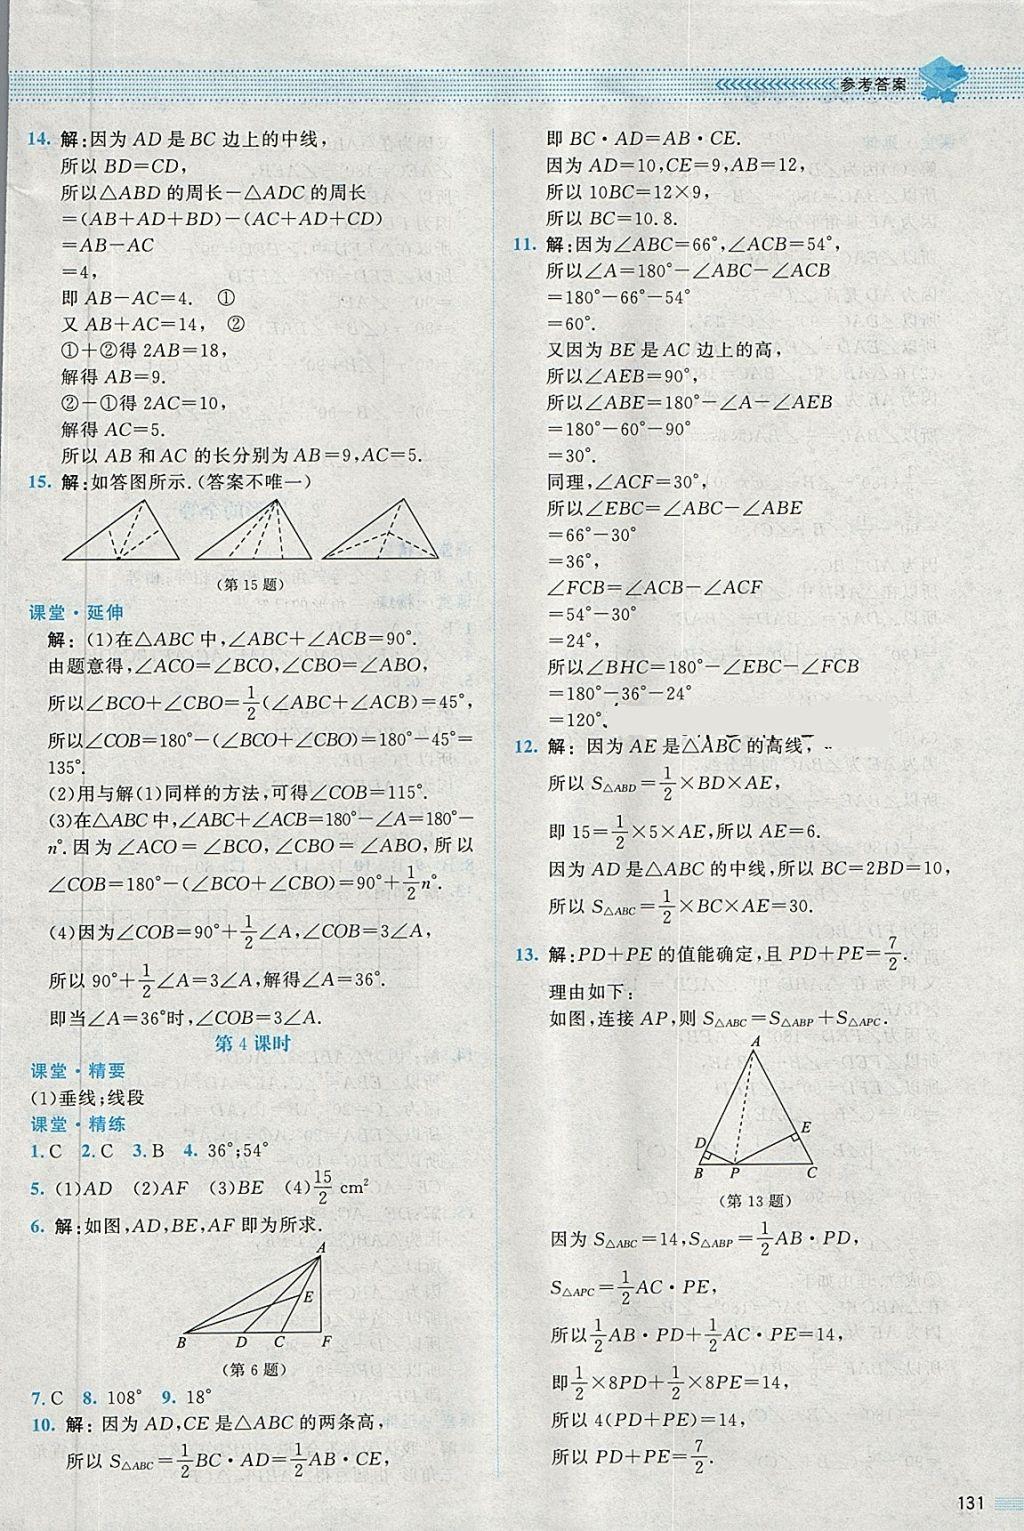 参考答案
14. 解:因为 AD 是 BC 边上的中线,
所以 BD=CD,
所以△ABD 的周长-△ADC 的周长
=(AB+AD+BD)-(AC+AD+CD)
=AB-AC
=4,
即 AB-AC=4. ①
又 AB+AC=14, ②
①+②得 2AB=18,
解得 AB=9.
②-①得 2AC=10,
解得 AC=5.
所以 AB 和 AC 的长分别为 AB=9,AC=5.
15. 解:如答图所示.(答案不唯一)
(第 15 题)
课堂·延伸
解: (1)在△ABC 中,∠ABC+∠ACB=90°.
由题意得,∠ACO=∠BCO,∠CBO=∠ABO,
所以∠BCO+∠CBO=1/2(∠ABC+∠ACB)=45°,
所以∠COB=180°-(∠BCO+∠CBO)=180°-45°=
135°.
(2)用与解(1)同样的方法,可得∠COB=115°.
(3)在△ABC 中,∠ABC+∠ACB=180°-∠A=180°-
n°.因为∠ACO=∠BCO,∠CBO=∠ABO,所以
∠COB=180°-(∠BCO+∠CBO)=90°+1/2n°.
(4)因为∠COB=90°+1/2∠A,∠COB=3∠A,
所以 90°+1/2∠A=3∠A,解得∠A=36°.
即当∠A=36°时,∠COB=3∠A.
第 4 课时
课堂·精要
(1)垂线;线段
课堂·精练
1. C 2. C 3. B 4. 36°;54°
5. (1)AD (2)AF (3)BE (4)15/2 cm²
6. 解:如图,AD,BE,AF 即为所求.
A
E
B D C F
(第 6 题)
7. C 8. 108° 9. 18°
10. 解: 因为 AD,CE 是△ABC 的两条高,
所以 S△ABC=1/2BC·AD=1/2AB·CE,
即 BC·AD=AB·CE.
因为 AD=10,CE=9,AB=12,
所以 10BC=12×9,
所以 BC=10.8.
11. 解:因为∠ABC=66°,∠ACB=54°,
所以∠A=180°-∠ABC-∠ACB
=180°-66°-54°
=60°.
又因为 BE 是 AC 边上的高,
所以∠AEB=90°,
所以∠ABE=180°-∠A-∠AEB
=180°-60°-90°
=30°.
同理,∠ACF=30°,
所以∠EBC=∠ABC-∠ABE
=66°-30°
=36°,
∠FCB=∠ACB-∠ACF
=54°-30°
=24°,
所以∠BHC=180°-∠EBC-∠FCB
=180°-36°-24°
=120°.
12. 解: 因为 AE 是△ABC 的高线,
所以 S△ABD=1/2×BD×AE,
即 15=1/2×5×AE,所以 AE=6.
因为 AD 是△ABC 的中线,所以 BC=2BD=10,
所以 S△ABC=1/2×BC×AE=30.
13. 解:PD+PE 的值能确定,且 PD+PE=7/2.
理由如下:
如图,连接 AP,则 S△ABC=S△ABP+S△APC.
A
E
D
B P C
(第 13 题)
因为 S△ABC=14,S△ABP=1/2AB·PD,
S△APC=1/2AC·PE,
所以1/2AB·PD+1/2AC·PE=14,
即1/2×8PD+1/2×8PE=14,
所以 4(PD+PE)=14,
所以 PD+PE=7/2.
131